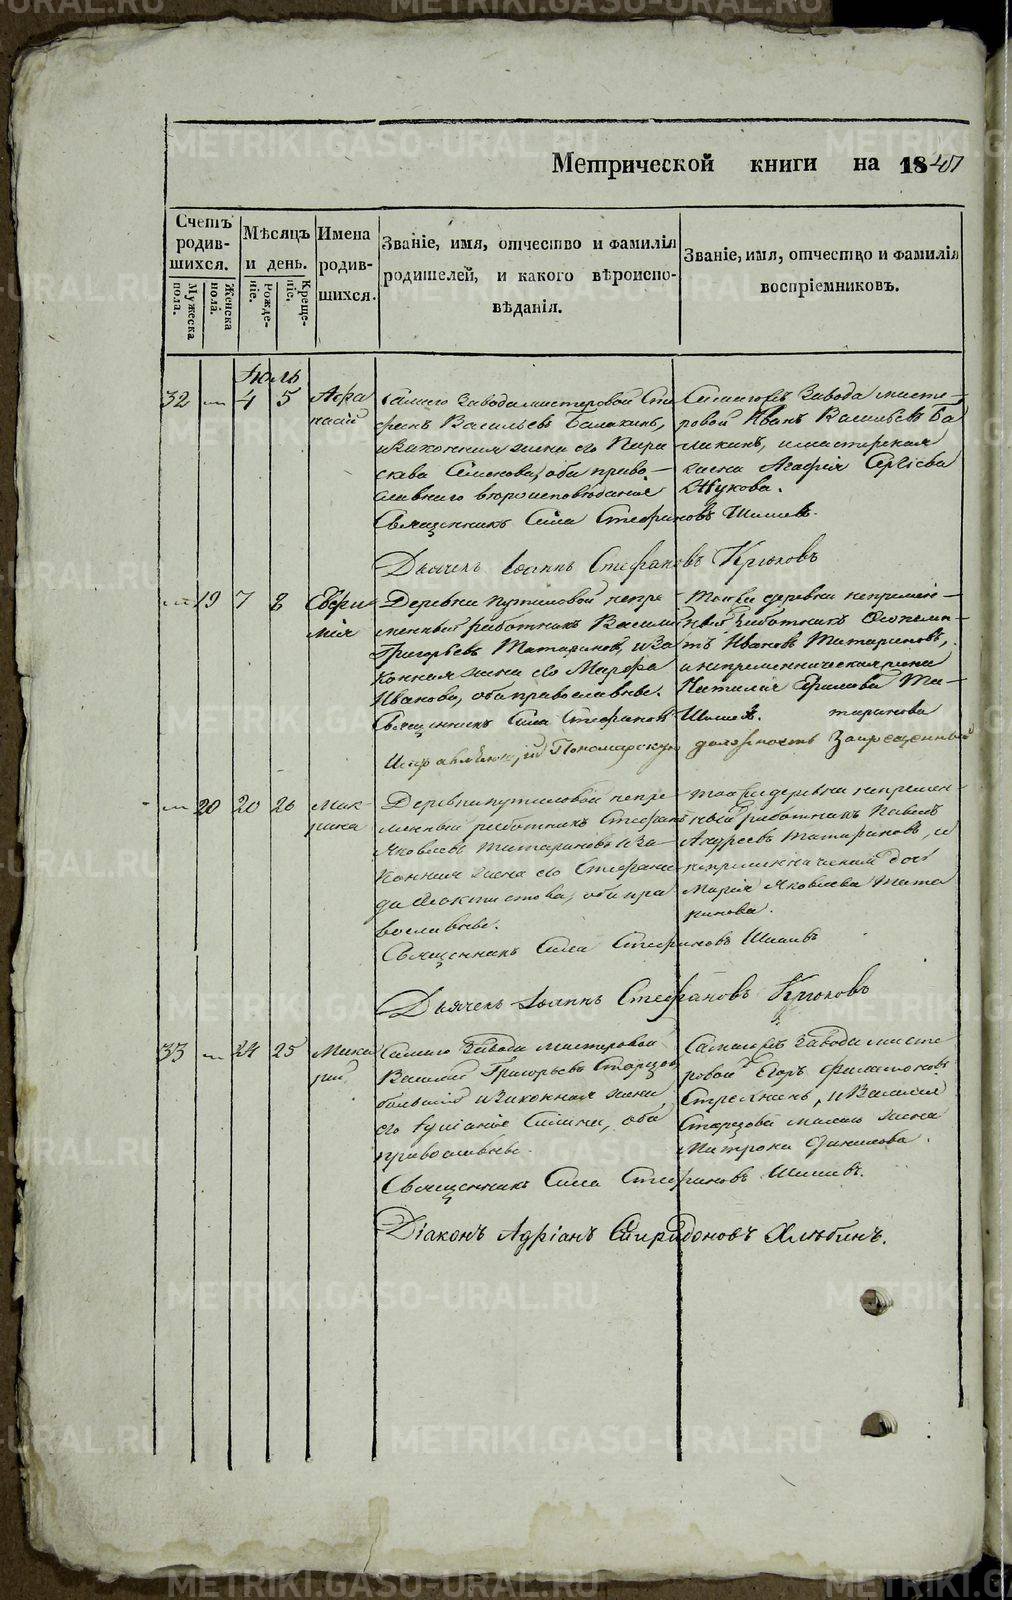 Метрической книги на 1840
Счетъ родившихся.
Мужеска пола.
Женска пола.
Мѣсяцъ и день.
Рожденіе.
Крещеніе.
Имена родившихся.
Званіе, имя, отчество и фамилія родителей, и какого вѣроисповѣданія.
Званіе, имя, отчество и фамилія воспріемниковъ.
Іюль
32 — 4 5
Афанасій
самаго Завода мастеровой Сте
фанъ Васильевъ Балакинъ,
и законная жена его Пара
скева Семенова, оба право
славнаго вѣроисповѣданія
Священникъ Сила Стефановъ
Дьячекъ Іоаннъ Стефановъ Крюковъ
Завода масте-
ровой Иванъ Васильевъ Ба
лакинъ, и мастерская
жена Агафія
Жукова.
— 19 7 8
Евфи
мія
Деревни Путиловой непре
менный работникъ Васили
Григорьевъ Татариновъ, и за
конная жена его Марфа
Иванова, оба православные.
Священникъ Сила Стефановъ
Пономарскую должность Запрещенный
деревни непремен-
ный работникъ
Ивановъ Татариновъ,
и непременническая жена
Наталія Та-
таринова
— 20 20 26
Мак-
рина
Деревни Путиловой непре-
менный работникъ Стефанъ
Яковлевъ Татариновъ и за-
конная жена его Стефани
да оба пра
вославные.
Священникъ Сила Стефановъ
Дьячекъ Іоаннъ Стефановъ Крюковъ
деревни непремен-
ный работникъ Павелъ
Андреевъ Татариновъ, и
непременническая дочь
Марія Яковлева Тата
ринова.
33 — 24 25
Мака
рій
Самаго Завода мастеровой
Василій Григорьевъ Старцовъ
большій и законная жена
его Іуліанія Силина, оба
православные.
Священникъ Сила Стефановъ
Діаконъ Адріанъ Спиридоновъ Хлѣбинъ.
Завода масте
ровой Егоръ
и Василія
Старцова малаго жена
Матрона
METRIKI.GASO-URAL.RU